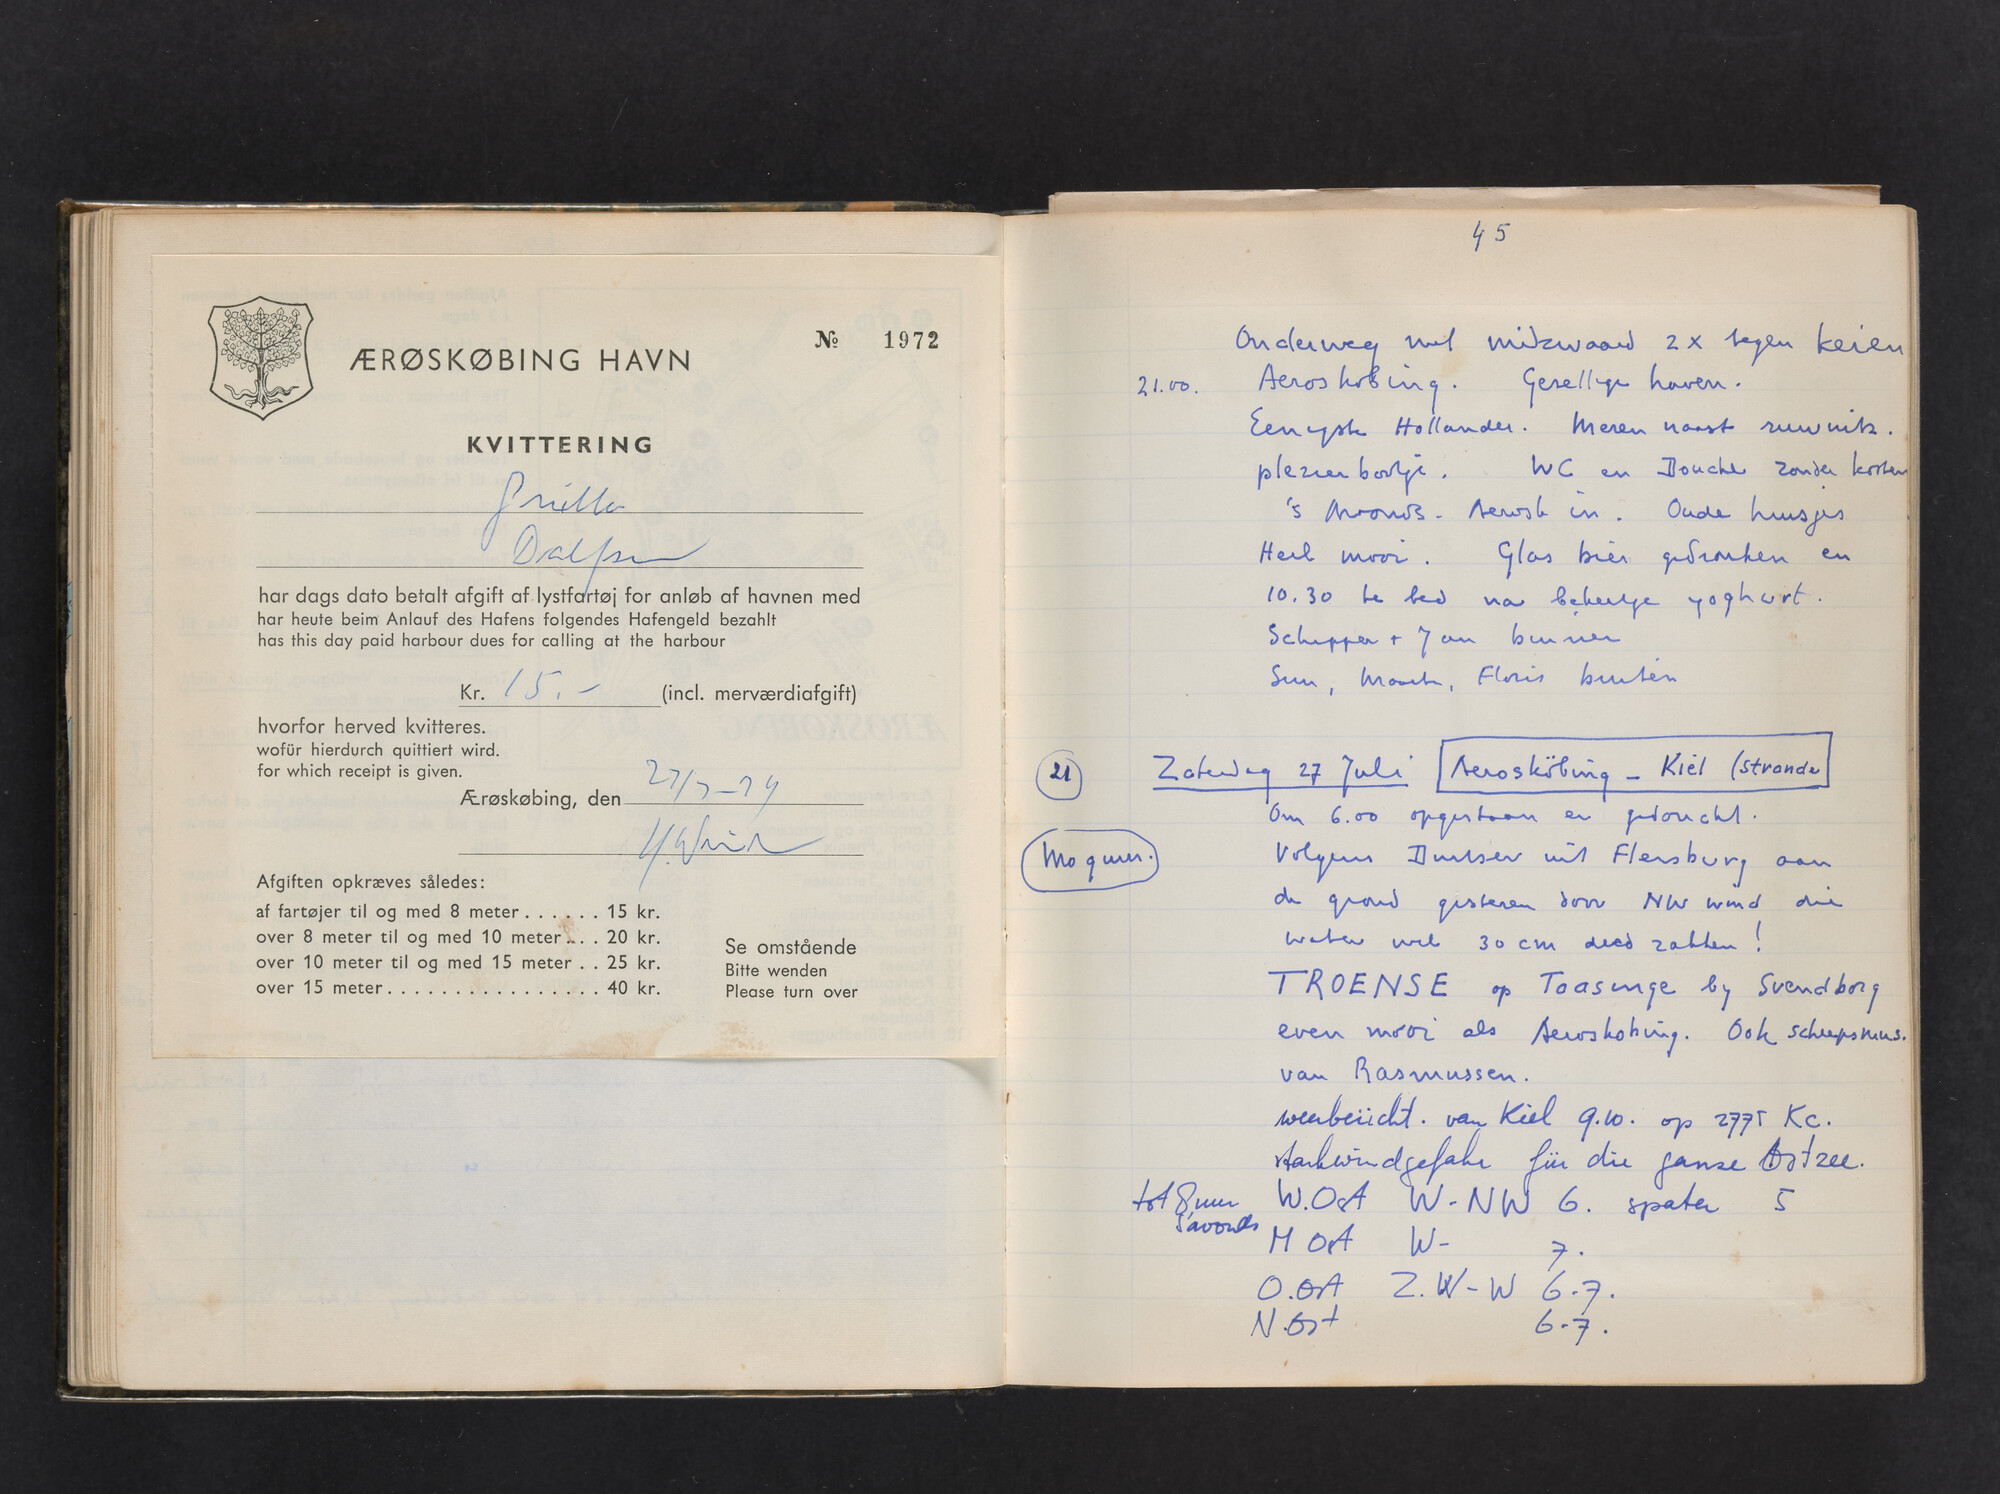 № 1972
ÆRØSKØBING HAVN
KVITTERING
har dags dato betalt afgift af lystfartøj for anløb af havnen med
har heute beim Anlauf des Hafens folgendes Hafengeld bezahlt
has this day paid harbour dues for calling at the harbour
Kr. 15.- (incl. merværdiafgift)
hvorfor herved kvitteres.
wofür hierdurch quittiert wird.
for which receipt is given.
Ærøskøbing, den 27/7-74
Afgiften opkræves således:
af fartøjer til og med 8 meter ...... 15 kr.
over 8 meter til og med 10 meter ... 20 kr.
over 10 meter til og med 15 meter .. 25 kr.
over 15 meter ................. 40 kr.
Se omstående
Bitte wenden
Please turn over
45
Onderweg met 2 x tegen keien
21.00. Aeroskobing. Gezellige haven.
Enigste Hollander. Meren naast
plezierbootje. WC en Douche zonder kosten
's Avonds Aerosk in. Oude huisjes
Heel mooi. Glas bier gedronken en
10.30 te bed na bekertje yoghurt.
Schipper + Jan binnen
Maarten, Floris buiten
21 Zaterdag 27 Juli Aerosköbing - Kiel (Strande
Om 6.00 opgestaan en gedoucht.
Volgens Duitser uit Flensburg aan
de grond gisteren door NW wind die
water wel 30 cm deed zakken!
TROENSE op Taasinge by Svendborg
even mooi als Aeroskobing. Ook scheepsmus.
van Rasmussen.
weerbericht. van Kiel 9.10. op 2775 Kc.
starkwindgefahr für die ganze Ostzee.
tot 8 uur 's avonds W.Ost W-NW 6. spater 5
M Ost W- 7.
O.Ost Z.W-W 6-7.
N.Ost 6-7.